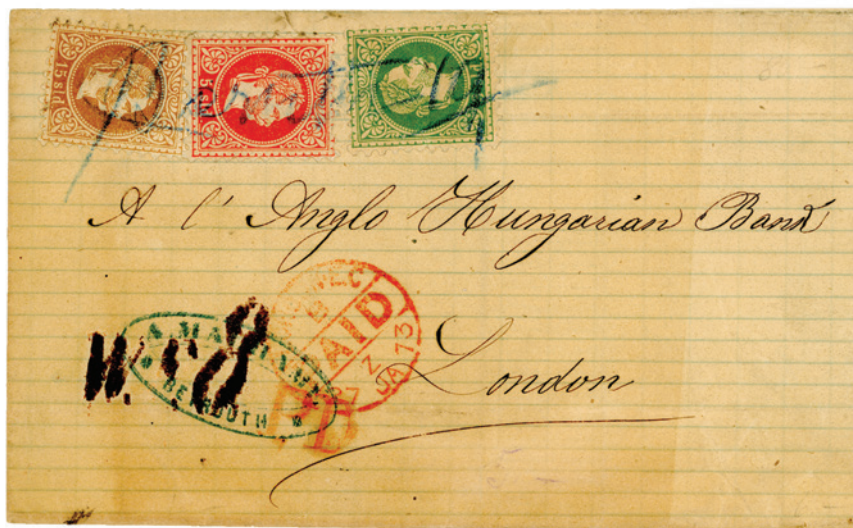 15 sld
5 sld
A l' Anglo Hungarian Bank
London
PAID
27 JA 73
W. 8
BEYROUTH
PD